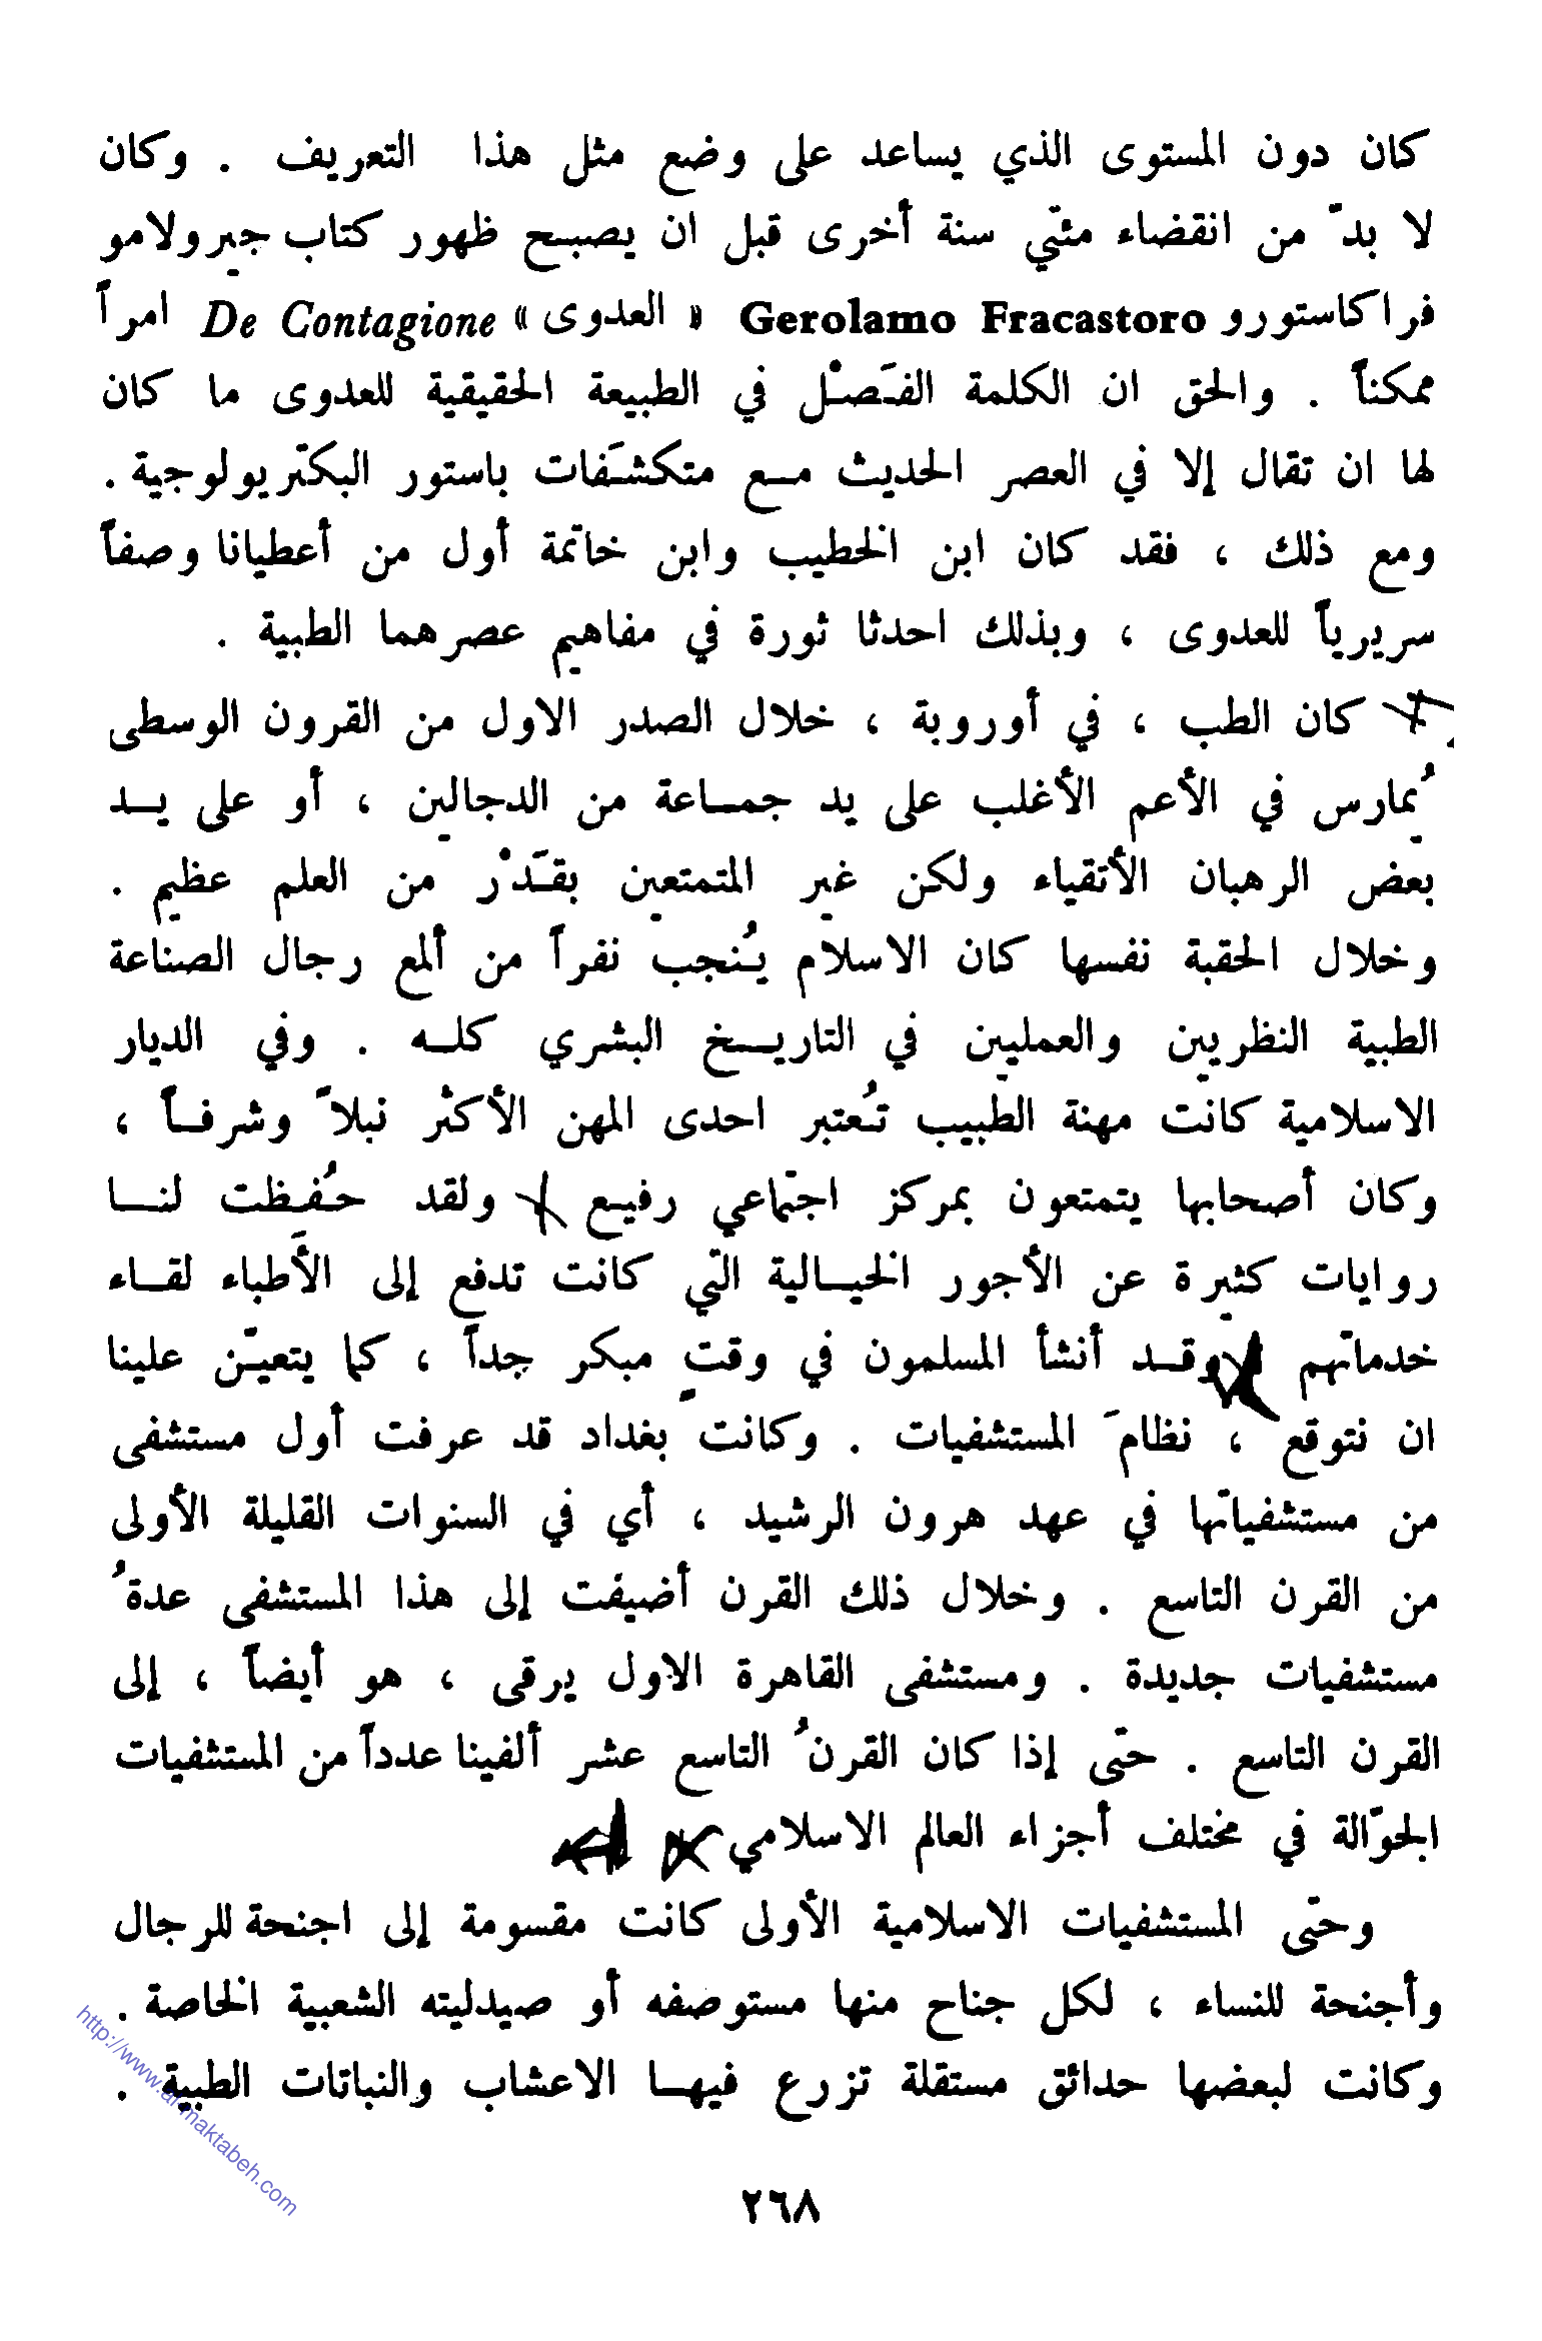 كان دون المستوى الذي يساعد على وضع مثل هذا التعريف . وكان
لا بدّ من انقضاء مئتي سنة أخرى قبل ان يصبح ظهور كتاب جيرولامو
فراكاستورو Gerolamo Fracastoro « العدوى » De Contagione امراً
ممكناً . والحق ان الكلمة الفَصْل في الطبيعة الحقيقية للعدوى ما كان
لها ان تقال إلا في العصر الحديث مع متكشَفات باستور البكتريولوجية .
ومع ذلك ، فقد كان ابن الخطيب وابن خاتمة أول من أعطيانا وصفاً
سريرياً للعدوى ، وبذلك احدثا ثورة في مفاهيم عصرهما الطبية .
كان الطب ، في أوروبة ، خلال الصدر الاول من القرون الوسطى
يُمارس في الأعم الأغلب على يد جماعة من الدجالين ، أو على يد
بعض الرهبان الأتقياء ولكن غير المتمتعين بقَدْر من العلم عظيم .
وخلال الحقبة نفسها كان الاسلام يُنجب نفراً من ألمع رجال الصناعة
الطبية النظريين والعمليين في التاريخ البشري كله . وفي الديار
الاسلامية كانت مهنة الطبيب تُعتبر احدى المهن الأكثر نبلاً وشرفاً ،
وكان أصحابها يتمتعون بمركز اجتماعي رفيع ولقد حُفِظت لنا
روايات كثيرة عن الأجور الخيالية التي كانت تدفع إلى الأطباء لقاء
خدماتهم وقد أنشأ المسلمون في وقتٍ مبكر جداً ، كما يتعيّن علينا
ان نتوقع ، نظامَ المستشفيات . وكانت بغداد قد عرفت أول مستشفى
من مستشفياتها في عهد هرون الرشيد ، أي في السنوات القليلة الأولى
من القرن التاسع . وخلال ذلك القرن أضيفت إلى هذا المستشفى عدةُ
مستشفيات جديدة . ومستشفى القاهرة الاول يرقى ، هو أيضاً ، إلى
القرن التاسع . حتى إذا كان القرنُ التاسع عشر ألفينا عدداً من المستشفيات
الجوّالة في مختلف أجزاء العالم الاسلامي
وحتى المستشفيات الاسلامية الأولى كانت مقسومة إلى اجنحة للرجال
وأجنحة للنساء ، لكل جناح منها مستوصفه أو صيدليته الشعبية الخاصة .
وكانت لبعضها حدائق مستقلة تزرع فيها الاعشاب والنباتات الطبية .
http://www.al-maktabeh.com
٢٦٨